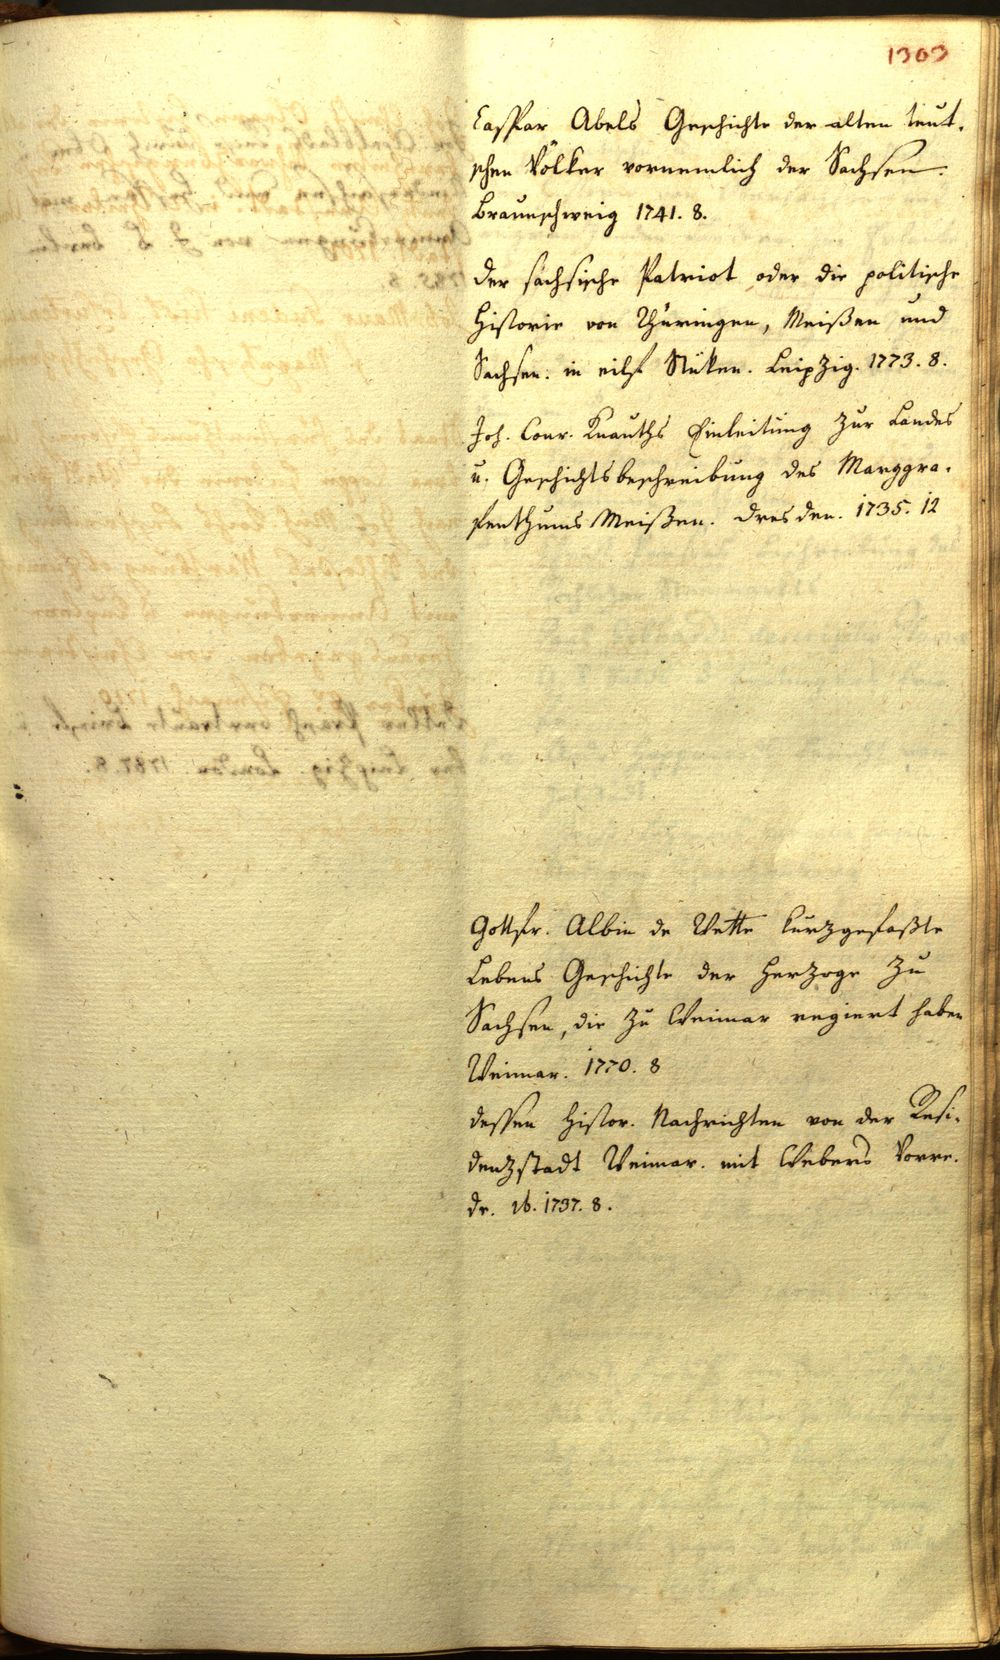 1303
Casspar Abels Geschichte der alten teut-
schen Völker vornemlich der Sachsen.
Braunschweig 1741. 8.
der sächsische Patriot oder die politische
Historie von Thüringen, Meißen und
Sachsen. in eilf Stüken. Leipzig. 1773. 8.
Joh. Conr. Knauths Einleitung zur Landes
u. Geschichtsbeschreibung des Marggra-
fenthums Meißen. Dresden. 1735. 12
Gottfr. Albin de Wette kurzgefaßte
Lebens Geschichte der Herzoge zu
Sachsen, die zu Weimar regiert haben
Weimar. 1770. 8
dessen Histor. Nachrichten von der Resi-
denzstadt Weimar. mit Webers Vorre-
de. ib. 1737. 8.